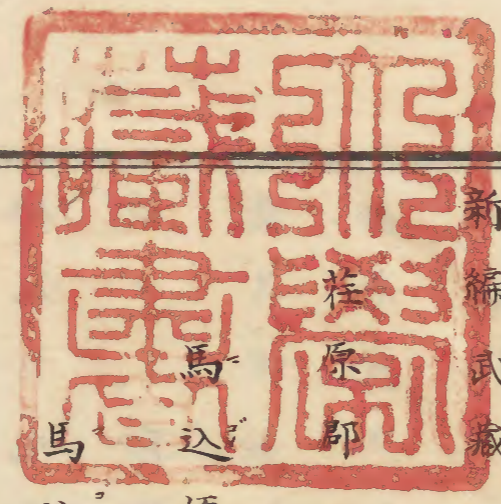 新編武藏
荏原郡
馬込
馬
藏書